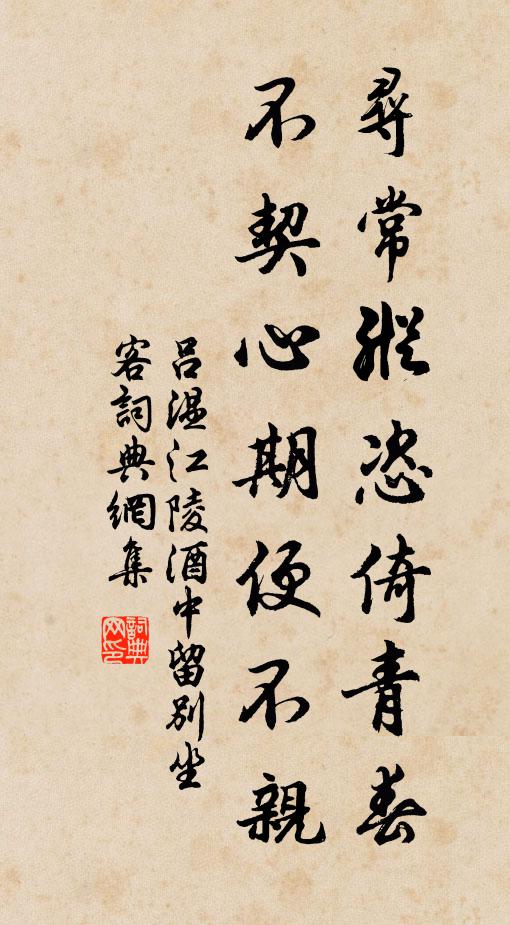 尋常縱恣倚青春
不契心期便不親
呂溫江陵酒中留別坐
客詞典網集
詞典網印